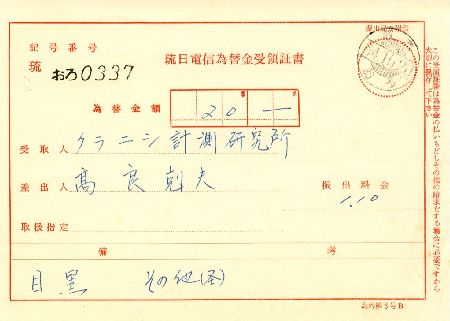 記号番号
琉 おろ0337
琉日電信為替金受領証書
振出局日附印
為替金額 $ 20 $ —
受取人 クラニシ計測研究所
差出人 高良 剋夫
振出料金
1.10
取扱指定
備考
目黒 その他(
為内第5号B
この受領証書は為替金の払いもどしその他の請求をする場合に必要ですから
大切に保存して下さい